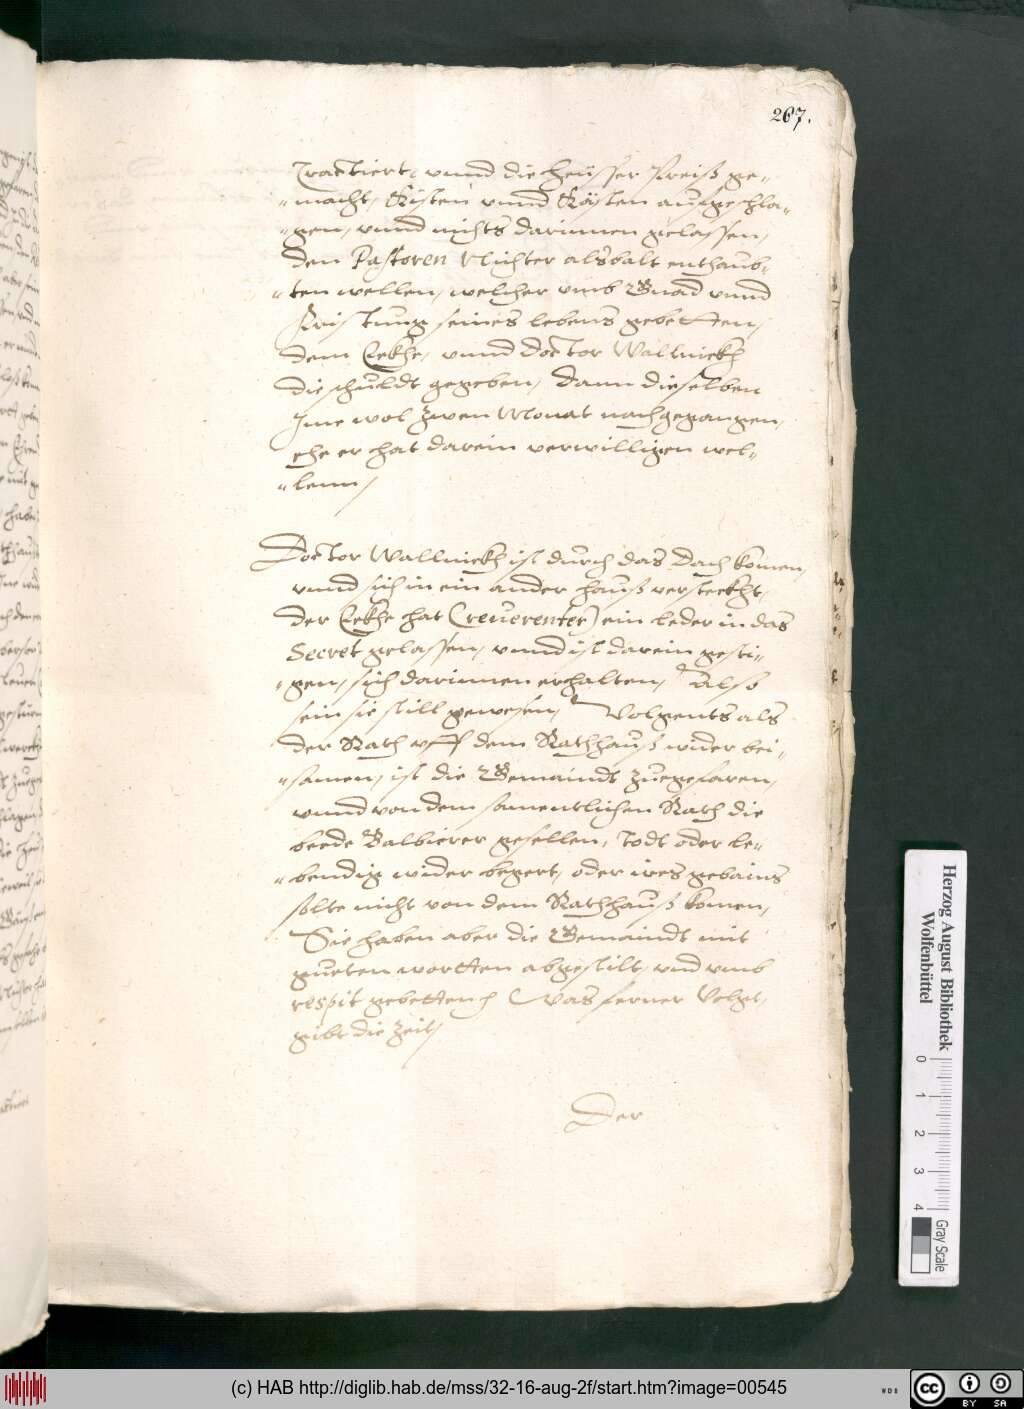 267.
Tractiert, vnnd die heüsser Preiß ge„
„macht, Kisten vnnd Kästen aufgeschla„
„gen, vnnd nichts darinnen gelassen,
den Pastoren Richter alsbalt enthaub„
„ten wellen, welcher vmb Gnad vnnd
Fristung seines lebens gebetten,
dem Cekhe, vnnd Doctor Wallnickh
die schuldt gegeben, dann dieselben
Jme wol zwen Monat nachgegangen,
ehe er hat darein verwilligen wel„
„lenn,
Doctor Wallnickh ist durch das Dach komen,
vnnd sich in ein ander hauß versteckht,
der Cekhe hat (reuerenter) ein leder in das
Secret gelassen, vnnd ist darein gesti„
„gen, sich darinnen erhalten, Also
sein sie still gewesen, Volgents als
der Rath vff dem Rathhauß wider bei„
„samen, ist die Gemaindt zuegefaren,
vnnd von dem samentlichen Rath die
beede Balbierer gesellen, Todt oder le„
„bendig wider begert, oder ires gebains
solte nicht von dem Rathhauß komen,
Sie haben aber die Gemaindt mit
gueten wortten abgestilt, vnd vmb
respit gebetten Was ferner Volgt,
gibt die Zeit,
Der
Herzog August Bibliothek
Wolfenbüttel
0 1 2 3 4
Gray Scale
(c) HAB http://diglib.hab.de/mss/32-16-aug-2f/start.htm?image=00545
WDB
cc BY SA